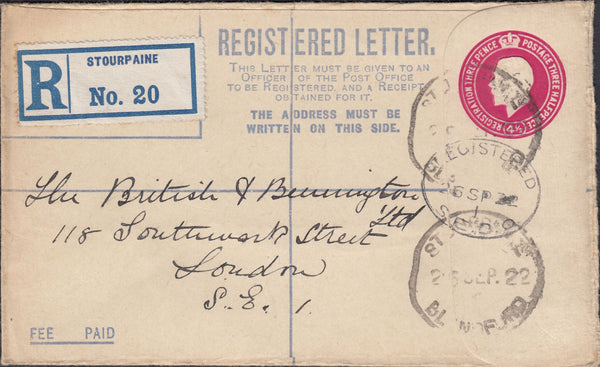 STOURPAINE
R
No. 20
REGISTERED LETTER.
THIS LETTER MUST BE GIVEN TO AN
OFFICER OF THE POST OFFICE
TO BE REGISTERED, AND A RECEIPT
OBTAINED FOR IT.
THE ADDRESS MUST BE
WRITTEN ON THIS SIDE.
REGISTRATION THREE PENCE POSTAGE THREE HALFPENCE
REGISTERED
SP 22
The British & Bennington
Ltd
118 Southwark Street
London
S.E. 1.
SEP. 22
BLANDFORD
FEE PAID